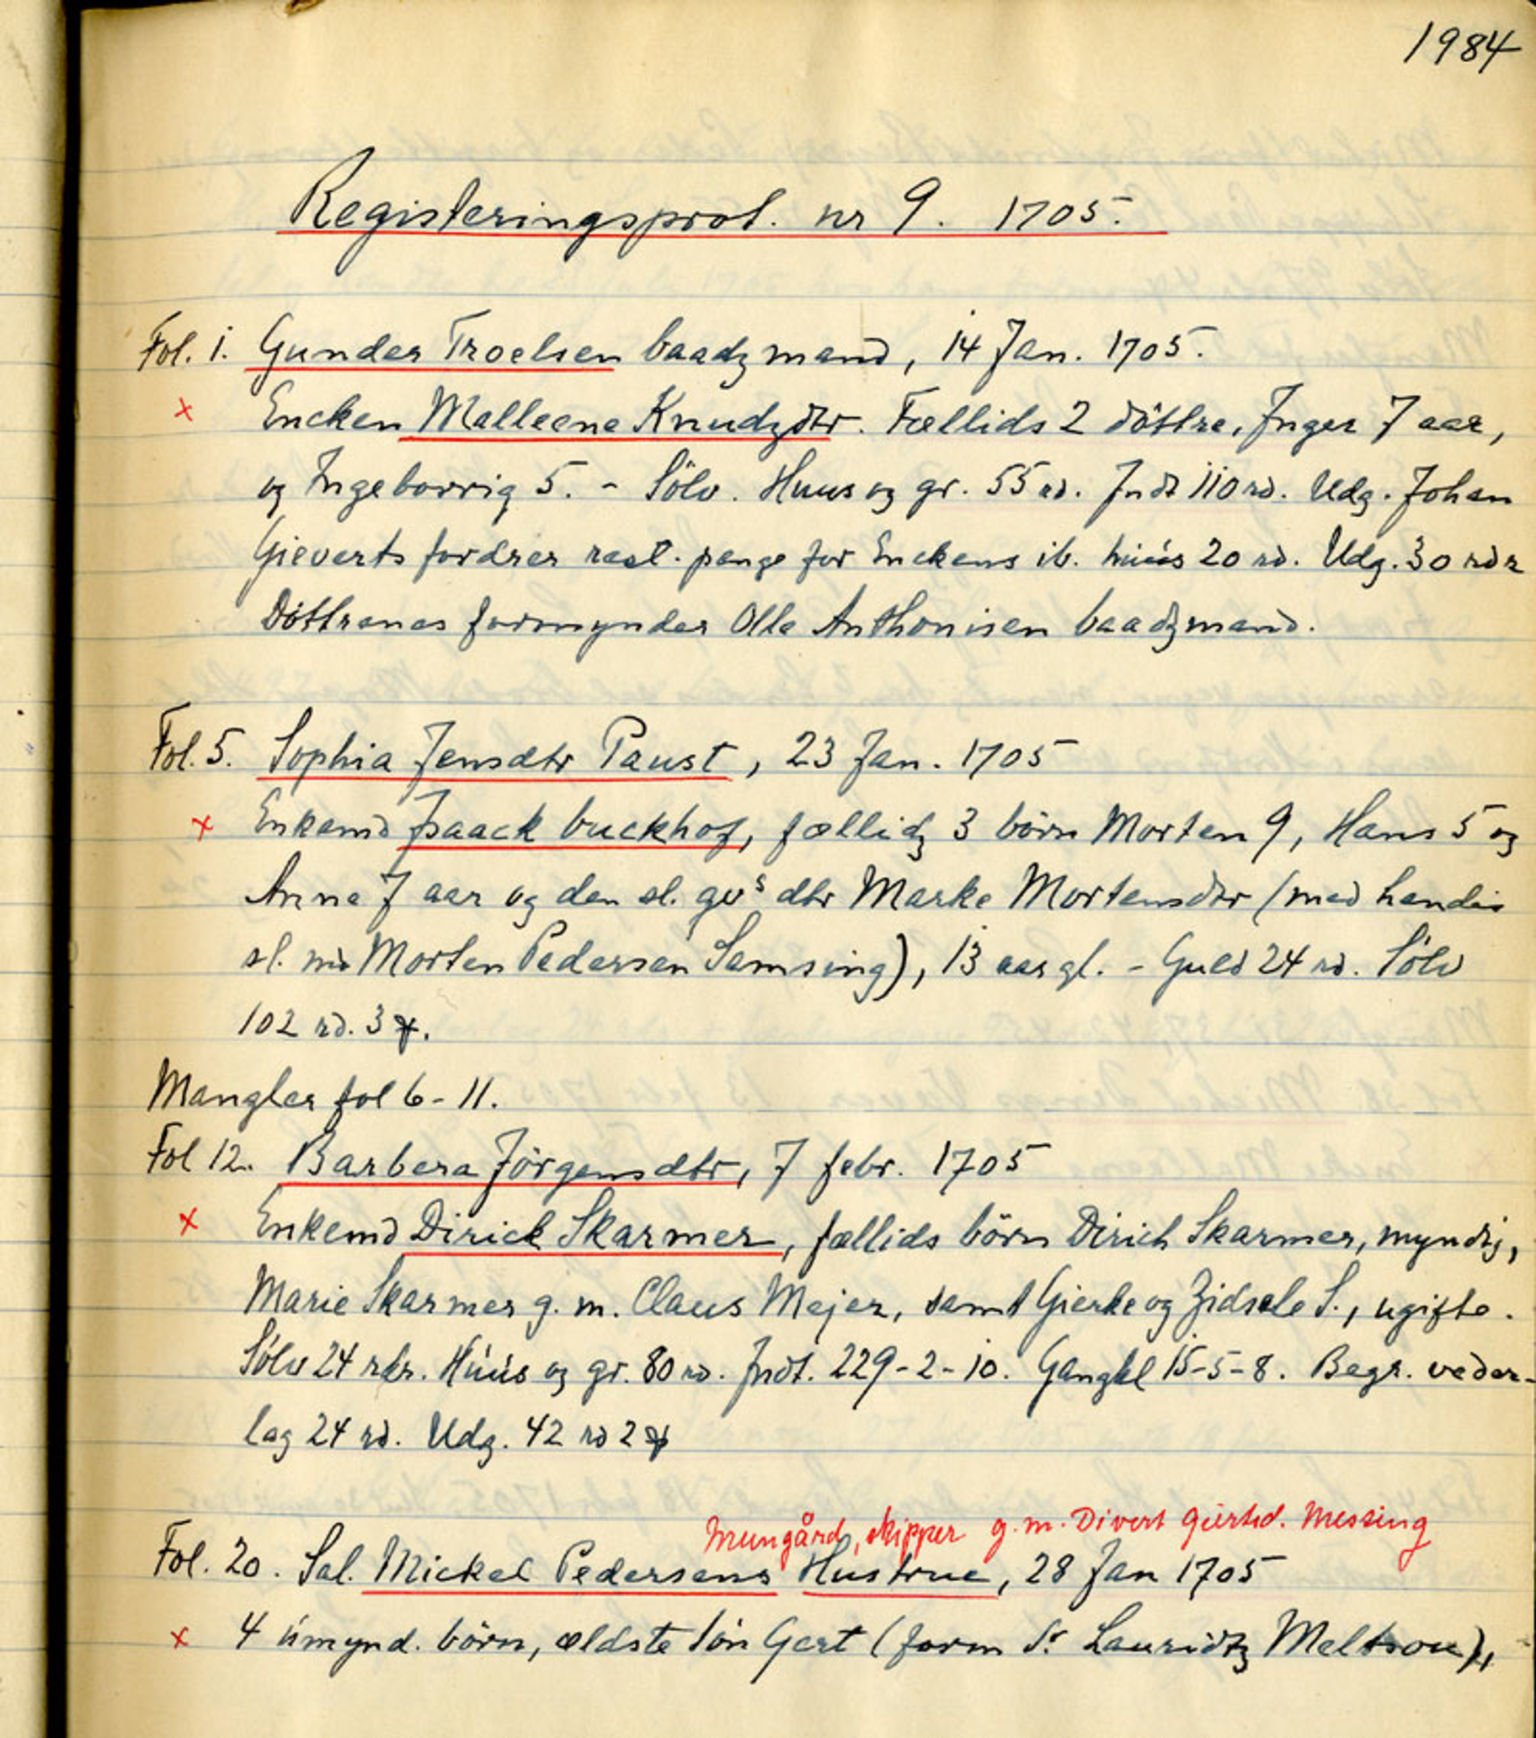 1984
Registeringsprot. nr 9. 1705.
Fol. 1. Gunder Troelsen baadzmand, 14 Jan. 1705.
x Encken Malleene Knudzdtr. Fællids 2 döttre, Inger 7 aar,
og Ingeborrig 5. - Sölv. Huus og gr. 55 rd. Indt 110 rd. Udg. Johan
Gieverts fordrer rest. penge for Enckens ib. huus 20 rd. Udg. 30 rdr
Döttrenes formynder Olle Anthonisen baadzmand.
Fol. 5. Sophia Jensdtr Paust, 23 Jan. 1705
x Enkemd Isaack buckhof, fællidz 3 börn Morten 9, Hans 5 og
Anne 7 aar og den sl. qvs dtr Marke Mortensdtr (med hendis
sl. md Morten Pedersen Samsing), 13 aar gl. - Guld 24 rd. Sölv
102 rd. 3
Mangler fol 6-11.
Fol 12. Barbera Jörgensdtr, 7 febr. 1705
x Enkemd Dirick Skarmer, fællids börn Dirich Skarmer, myndig,
Marie Skarmer g. m. Claus Mejer, samt Gierke og Zidsele S., ugifte.
Sölv 24 rdr. Huus og gr. 80 rd. Indt. 229-2-10. 15-5-8. Begr. veder-
lag 24 rd. Udg. 42 rd 2
Mungård, skipper g. m. Divert Giertsd. Messing
Fol. 20. Sal. Mickel Pedersens Hustrue, 28 Jan 1705
x 4 umynd. börn, ældste sön Gert (form Sr Lauridtz